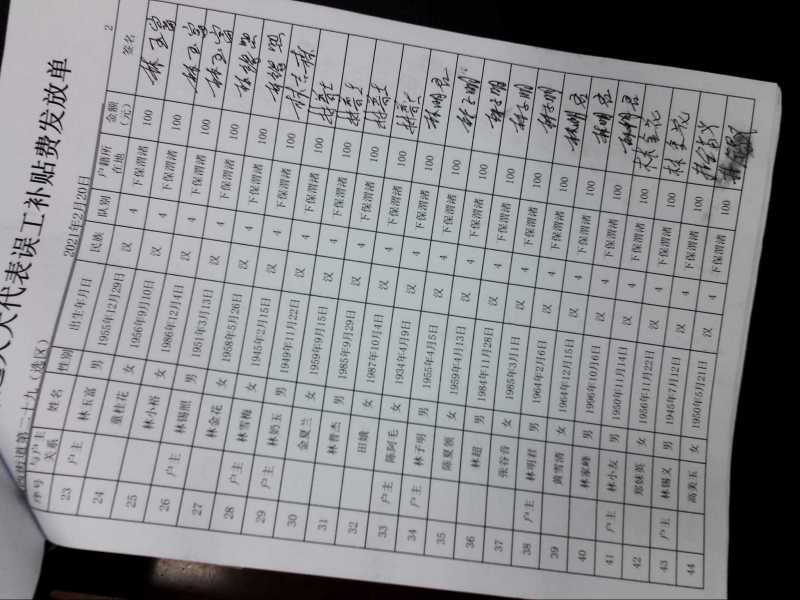 人大代表误工补贴费发放单
改街道第二十九（选区） 2021年2月20日 2
序号 与户主关系 姓名 性别 出生年月日 民族 队别 户籍所在地 金额（元） 签名
23 户主 林玉富 男 1955年12月29日 汉 4 下保渭渚 100 林玉富
24 童桂花 女 1956年9月10日 汉 4 下保渭渚 100 林玉富
25 林小裕 女 1986年12月4日 汉 4 下保渭渚 100 林玉富
26 户主 林锡照 男 1951年3月13日 汉 4 下保渭渚 100 林锡照
27 林金花 女 1958年5月26日 汉 4 下保渭渚 100 林锡照
28 户主 林雪梅 女 1945年2月15日 汉 4 下保渭渚 100
29 户主 林奶玉 男 1949年11月22日 汉 4 下保渭渚 100
30 金夏兰 女 1959年9月15日 汉 4 下保渭渚 100
31 林普杰 男 1985年9月29日 汉 4 下保渭渚 100
32 田娥 女 1987年10月4日 汉 4 下保渭渚 100
33 户主 陈阿毛 女 1934年4月9日 汉 4 下保渭渚 100 林明君
34 户主 林子明 男 1955年4月5日 汉 4 下保渭渚 100 林子明
35 陈夏领 女 1959年4月13日 汉 4 下保渭渚 100 林子明
36 林超 男 1984年11月28日 汉 4 下保渭渚 100 林子明
37 张谷音 女 1985年3月1日 汉 4 下保渭渚 100 林子明
38 户主 林明君 男 1964年2月6日 汉 4 下保渭渚 100 林明君
39 黄雪清 女 1964年12月15日 汉 4 下保渭渚 100 林明君
40 林家峰 男 1996年10月6日 汉 4 下保渭渚 100 林明君
41 户主 林小友 男 1950年11月14日 汉 4 下保渭渚 100
42 郑妹英 女 1956年11月22日 汉 4 下保渭渚 100
43 户主 林锡义 男 1945年7月12日 汉 4 下保渭渚 100
44 高美玉 女 1950年5月21日 汉 4 下保渭渚 100